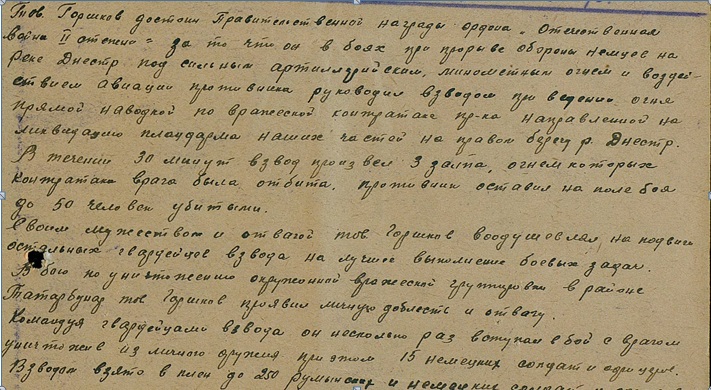 Тов. Горшков достоин Правительственной награды ордена „Отечественная
война II степени" за то что он в боях при прорыве обороны немцев на
реке Днестр под сильным артиллерийским, минометным огнем и воздей-
ствием авиации противника руководил взводом при ведении огня
прямой наводкой по вражеской контратаке пр-ка направленной на
ликвидацию плацдарма наших частей на правом берегу р. Днестр.
В течении 30 минут взвод произвел 3 залпа, огнем которых
контратака врага была отбита. противник оставил на поле боя
до 50 человек убитыми.
Своим мужеством и отвагой тов. Горшков воодушевлял на подвиги
остальных гвардейцев взвода на лучшее выполнение боевых задач.
В бою по уничтожению окруженной вражеской группировки в районе
Татарбунар тов Горшков проявил личную доблесть и отвагу.
Командуя гвардейцами взвода он несколько раз вступал в бой с врагом
уничтожив из личного оружия при этом 15 немецких солдат и офицеров.
Взводом взято в плен до 250 румынских и немецких солдат